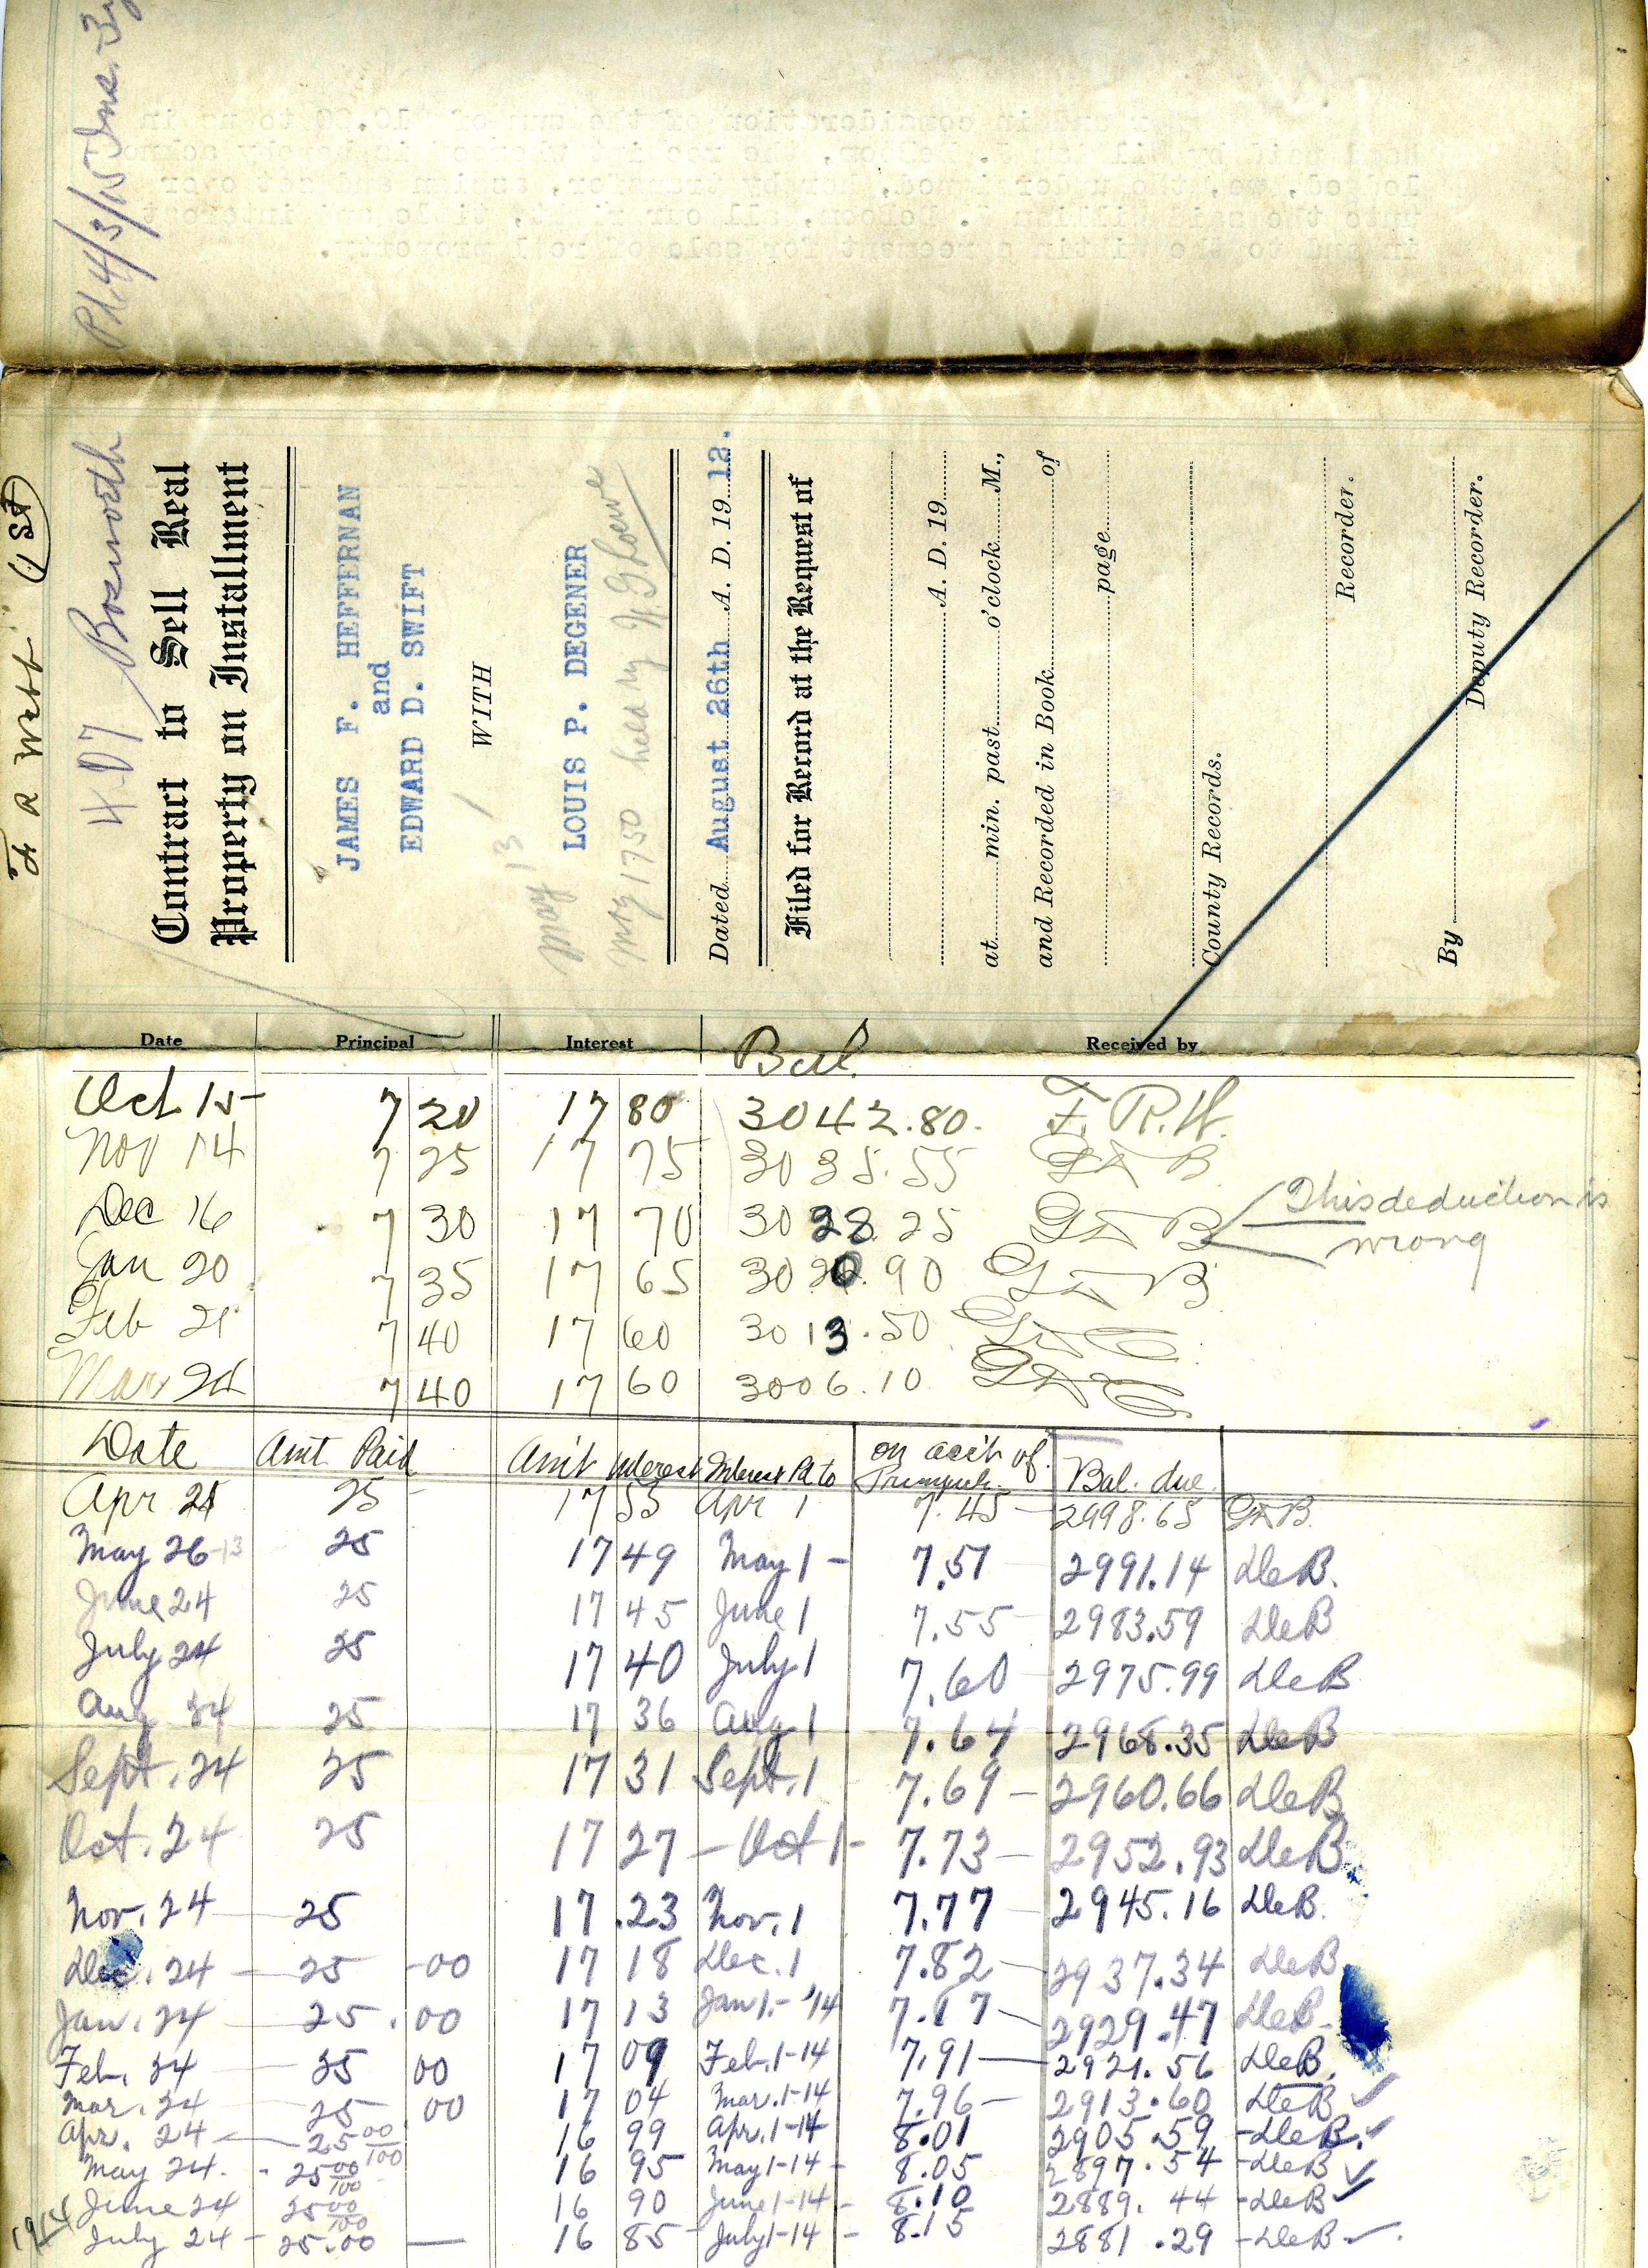 Pd. 4/3/15 Ins. 3y
in consideration of the sum of $10.00 to us in
unto the said William
in and to the within agreement sale of real property.
F R Webb (1st)
4-D7 Bosworth
Contract to Sell Real
Property on Installment
JAMES F. HEFFERNAN
and
EDWARD D. SWIFT
WITH
May 13
LOUIS P. DEGENER
May 1750 held by Loewe
Dated August 26th A. D. 19 12.
Filed for Record at the Request of
A. D. 19
at min. past o'clock M.,
and Recorded in Book of
page
County Records.
Recorder.
By Deputy Recorder.
Date Principal Interest Bal. Received by
Oct 15- 7 20 17 80 3042.80. F. R. H.
Nov 14 7 25 17 75 3035.55 B
Dec 16 7 30 17 70 3028.25 B This deduction is
wrong
Jan 20 7 35 17 65 3020.90 B
Feb 21 7 40 17 60 3013.50
Mar 24 7 40 17 60 3006.10
Date Amt Paid Amt Interest Interest Pd to on acct of Principle. Bal. due.
Apr 25 25 - 17 55 Apr 1 7.45 - 2998.65
May 26-13 25 17 49 May 1 - 7.51 2991.14 DleB.
June 24 25 17 45 June 1 7.55 - 2983.59 DleB
July 24 25 17 40 July 1 7.60 - 2975.99 DleB
Aug 24 25 17 36 Aug 1 7.64 2968.35 DleB
Sept. 24 25 17 31 Sept. 1 7.69 - 2960.66 DleB
Oct. 24 25 17 27 - Oct 1 - 7.73 - 2952.93 DleB
Nov. 24 - 25 17.23 Nov. 1 7.77 - 2945.16 DleB.
Dec. 24 - 25 -00 17 18 Dec. 1 7.82 - 2937.34 DleB
Jan. 24 - 25.00 17 13 Jan 1.-'14 7.87 - 2929.47 DleB.
Feb. 24 - 25 00 17 09 Feb. 1-14 7.91 - 2921.56 DleB.
Mar. 24 - 25.00 17 04 Mar. 1-14 7.96 - 2913.60 DleB ✓
Apr. 24 - 25 00/100 16 99 Apr. 1-14 8.01 2905.59 -DleB. ✓
May 24. - 25 00/100 16 95 May 1-14 - 8.05 2897.54 -DleB ✓
June 24 25 00/100 16 90 June 1-14 - 8.10 2889.44 -DleB ✓
1914 July 24 - 25.00 — 16 85 - July 1-14 - 8.15 2881.29 -DleB ✓